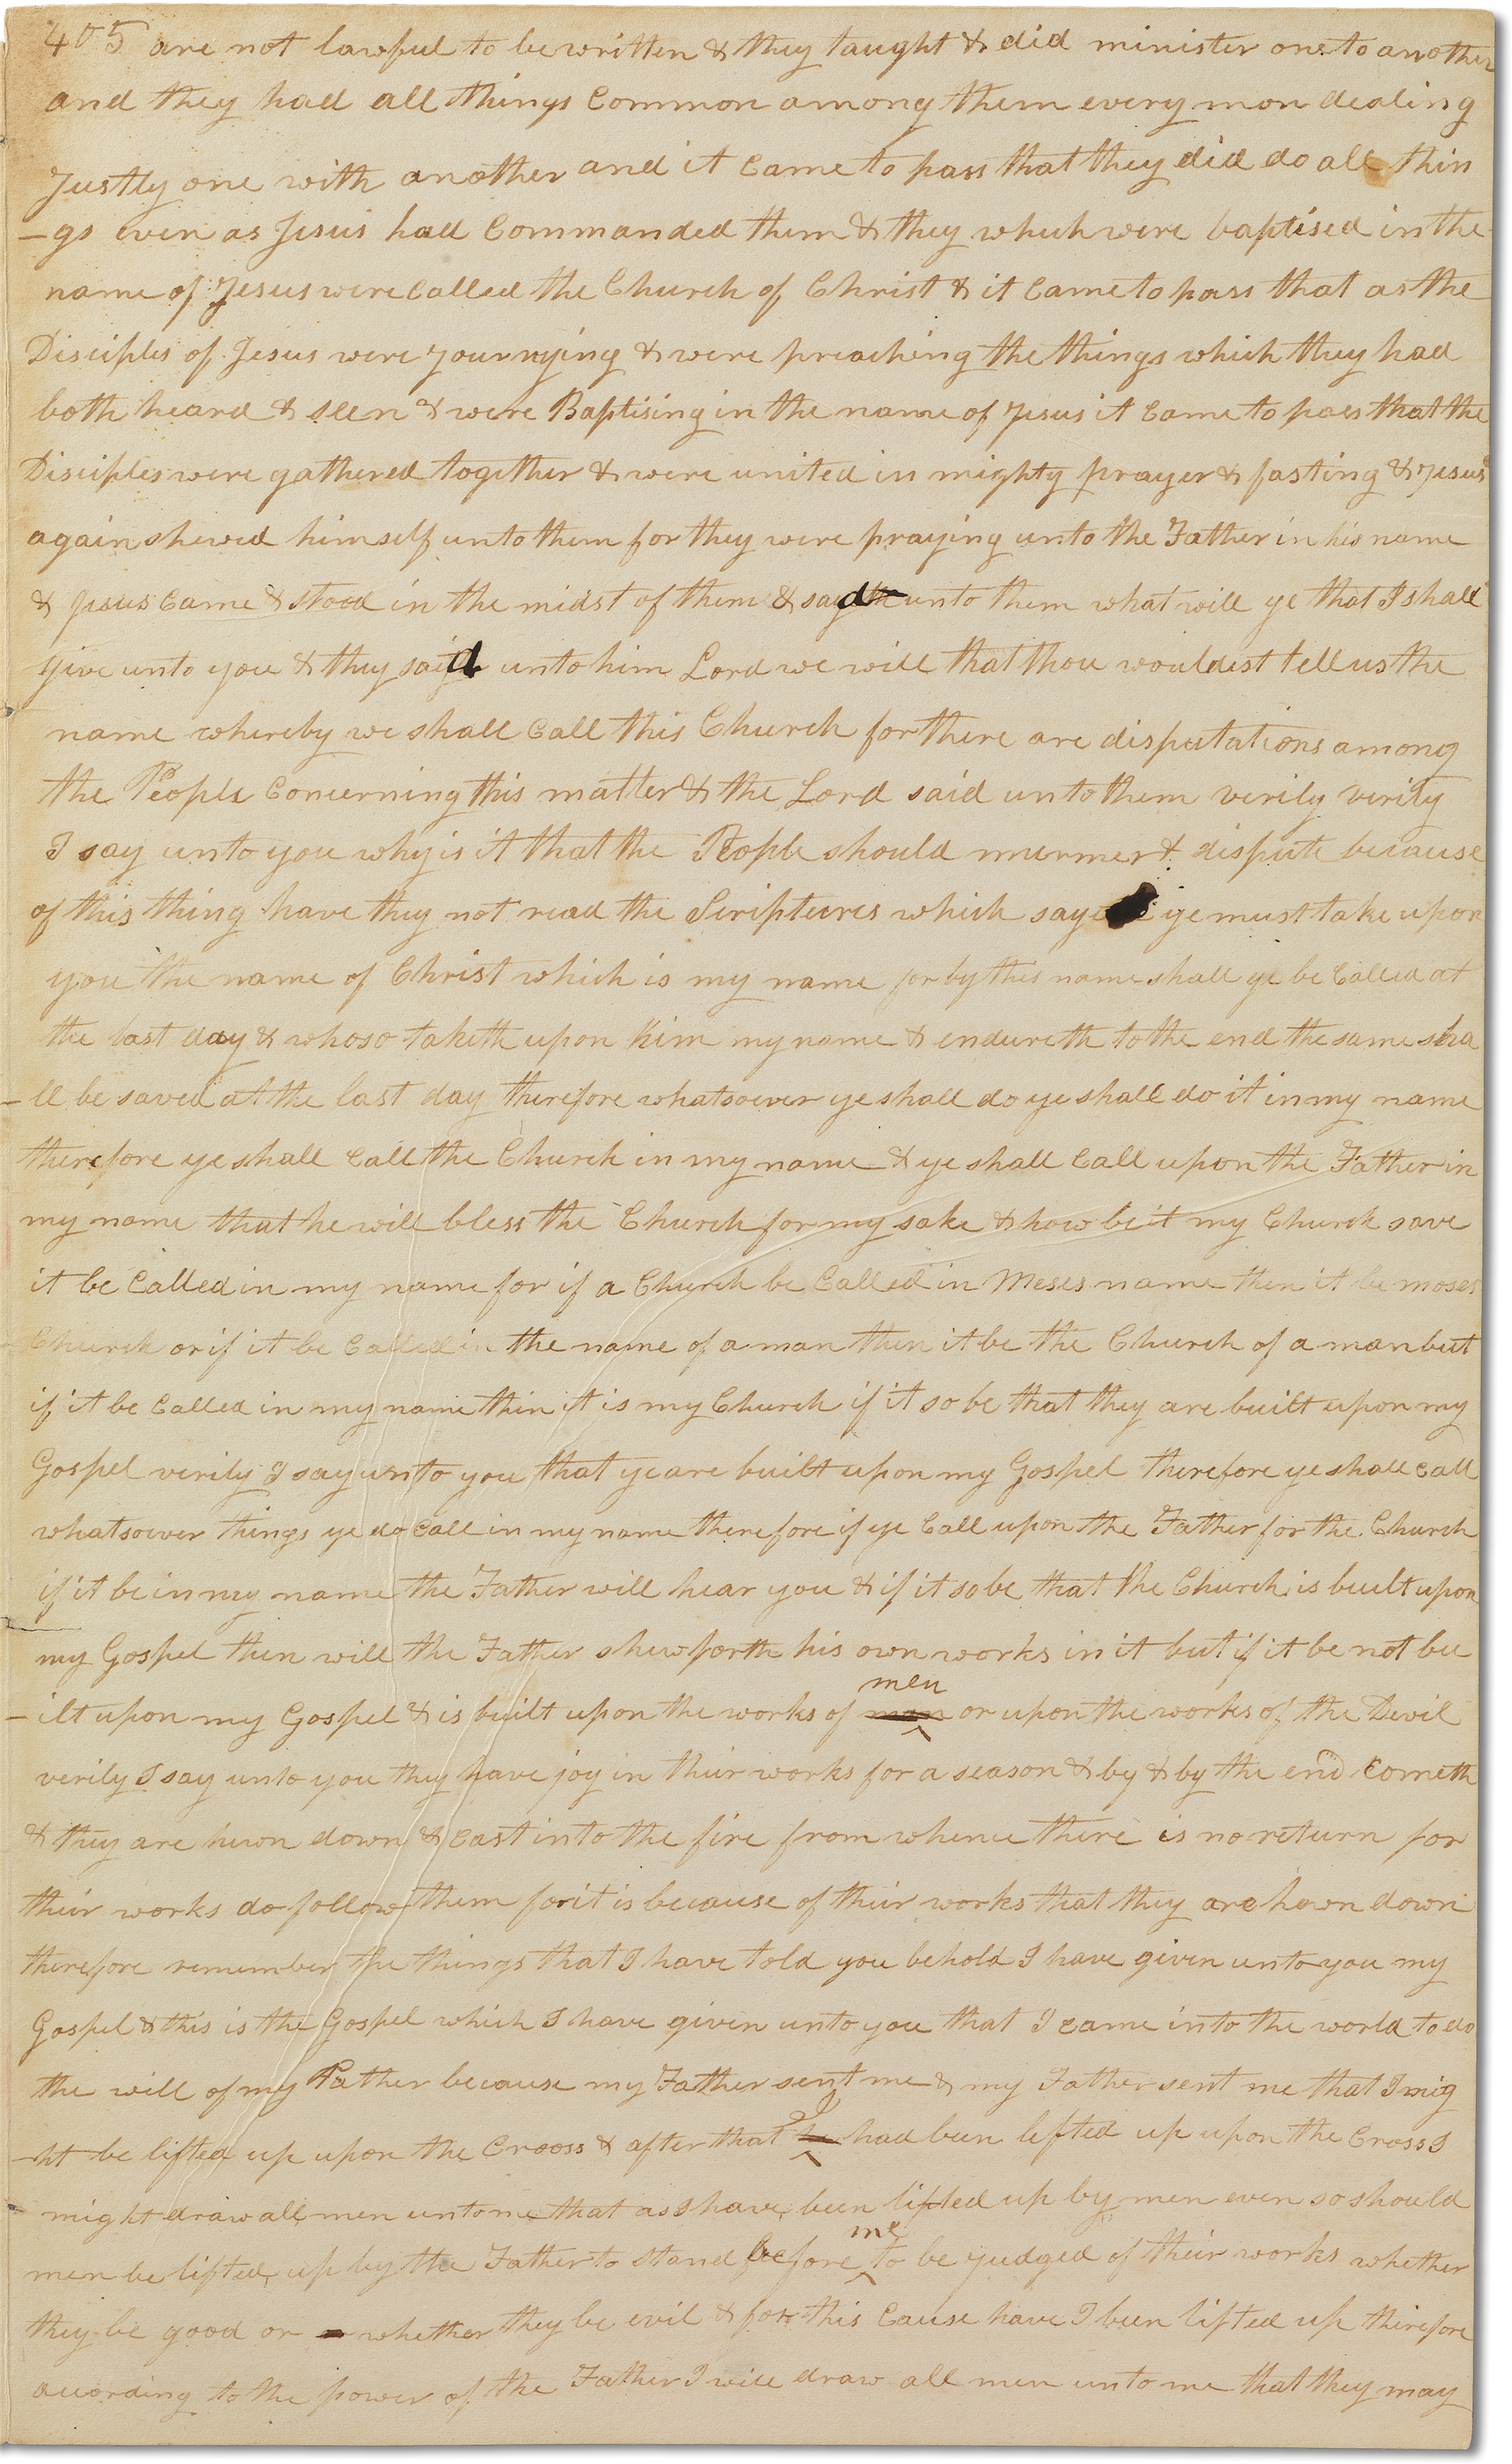 405 are not lawful to be written & they taught & did minister one to another
and they had all things Common among them every man dealing
Justly one with another and it Came to pass that they did do all thin
-gs even as Jesus had Commanded them & they which were baptised in the
name of Jesus were Called the Church of Christ & it Came to pass that as the
Disciples of Jesus were Journying & were preaching the things which they had
both heard & seen & were Baptising in the name of Jesus it Came to pass that the
Disciples were gathered together & were united in mighty prayer & fasting & Jesus
again shewed himself unto them for they were praying unto the Father in his name
& Jesus Came & stood in the midst of them & sayd unto them what will ye that I shall
give unto you & they said unto him Lord we will that thou wouldest tell us the
name whereby we shall Call this Church for there are disputations among
the People Concerning this matter & the Lord said unto them verily verily
I say unto you why is it that the People should murmer & dispute because
of this thing have they not read the Scriptures which say ye must take upon
you the name of Christ which is my name for by this name shall ye be Called at
the last day & whoso taketh upon him my name & endureth to the end the same sha
-ll be saved at the last day therefore whatsoever ye shall do ye shall do it in my name
therefore ye shall Call the Church in my name & ye shall Call upon the Father in
my name that he will bless the Church for my sake & how be it my Church save
it be Called in my name for if a Church be Called in Moses name then it be moses
Church or if it be Called in the name of a man then it be the Church of a man but
if it be Called in my name then it is my Church if it so be that they are built upon my
Gospel verily I say unto you that ye are built upon my Gospel therefore ye shall Call
whatsoever things ye do Call in my name therefore if ye Call upon the Father for the Church
if it be in my name the Father will hear you & if it so be that the Church is built upon
my Gospel then will the Father shew forth his own works in it but if it be not bu
-ilt upon my Gospel & is built upon the works of man men or upon the works of the Devil
verily I say unto you they have joy in their works for a season & by & by the end Cometh
& they are hewn down & Cast into the fire from whence there is no return for
their works do follow them for it is because of their works that they are hewn down
therefore remember the things that I have told you behold I have given unto you my
Gospel & this is the Gospel which I have given unto you that I came into the world to do
the will of my Father because my Father sent me & my Father sent me that I mig
-ht be lifted up upon the Crooss & after that I had been lifted up upon the Cross I
might draw all men unto me that as I have been lifted up by men even so should
men be lifted up by the Father to stand before me to be Judged of their works whether
they be good or whether they be evil & for this Cause have I been lifted up therefore
according to the power of the Father I will draw all men unto me that they may